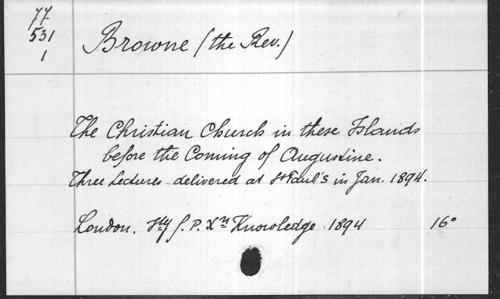 77
531
1
Browne (the Rev.)
The Christian Church in these Islands
before the Coming of Augustine.
Three Lectures delivered at St Paul's in Jan. 1894.
London. Sty f. P. Xn Knowledge 1894 16°